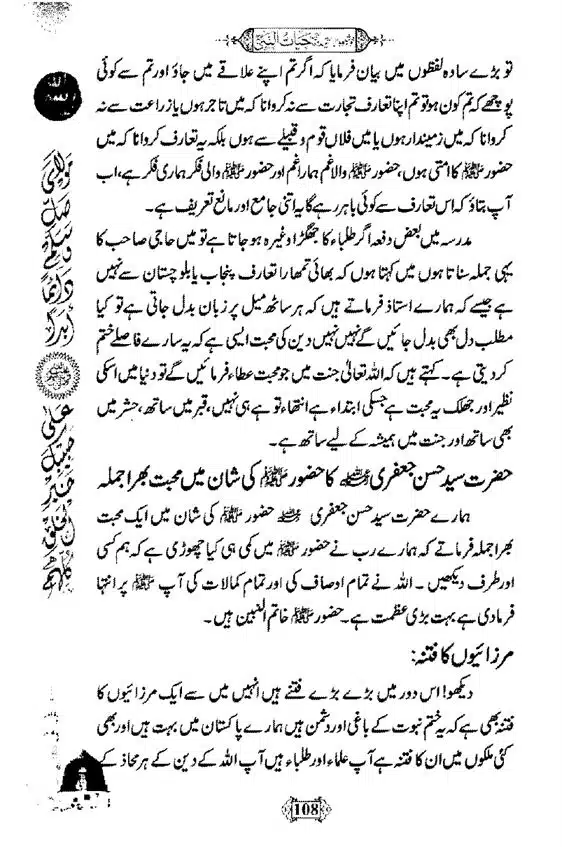 حیات النبی ﷺ
تو بڑے سادہ لفظوں میں بیان فرمایا کہ اگر تم اپنے علاقے میں جاؤ اور تم سے کوئی
پوچھے کہ تم کون ہو تو تم اپنا تعارف تجارت سے نہ کروانا کہ میں تاجر ہوں یا زراعت سے نہ
کروانا کہ میں زمیندار ہوں یا میں فلاں قوم و قبیلے سے ہوں بلکہ یہ تعارف کروانا کہ میں
حضور ﷺ کا امتی ہوں، حضور ﷺ والا غم ہمارا غم اور حضور ﷺ والی فکر ہماری فکر ہے، اب
آپ بتاؤ کہ اس تعارف سے کوئی باہر رہے گا یہ اتنی جامع اور مانع تعریف ہے۔
مدرسہ میں بعض دفعہ اگر طلباء کا جھگڑا وغیرہ ہو جاتا ہے تو میں حاجی صاحب کا
یہی جملہ سناتا ہوں میں کہتا ہوں کہ بھائی تمھارا تعارف پنجاب یا بلوچستان سے نہیں
ہے جیسے کہ ہمارے استاذ فرماتے ہیں کہ ہر ساٹھ میل پر زبان بدل جاتی ہے تو کیا
مطلب دل بھی بدل جائیں گے نہیں نہیں دین کی محبت ایسی ہے کہ یہ سارے فاصلے ختم
کر دیتی ہے۔ کہتے ہیں کہ اللہ تعالیٰ جنت میں جو محبت عطاء فرمائیں گے تو دنیا میں اسکی
نظیر اور جھلک یہ محبت ہے جسکی ابتداء ہے انتھاء تو ہے ہی نہیں، قبر میں ساتھ، حشر میں
بھی ساتھ اور جنت میں ہمیشہ کے لیے ساتھ ہے۔
حضرت سید حسن جعفری رحمۃ اللہ علیہ کا حضور ﷺ کی شان میں محبت بھرا جملہ
ہمارے حضرت سید حسن جعفری رحمۃ اللہ علیہ حضور ﷺ کی شان میں ایک محبت
بھرا جملہ فرماتے کہ ہمارے رب نے حضور ﷺ میں کمی ہی کیا چھوڑی ہے کہ ہم کسی
اور طرف دیکھیں۔ اللہ نے تمام اوصاف کی اور تمام کمالات کی آپ ﷺ پر انتہا
فرما دی ہے بہت بڑی عظمت ہے۔ حضور ﷺ خاتم النبین ہیں۔
مرزائیوں کا فتنہ:
دیکھو! اس دور میں بڑے بڑے فتنے ہیں انہیں میں سے ایک مرزائیوں کا
فتنہ بھی ہے کہ یہ ختم نبوت کے باغی اور دشمن ہیں ہمارے پاکستان میں بہت ہیں اور بھی
کئی ملکوں میں ان کا فتنہ ہے آپ علماء اور طلباء ہیں آپ اللہ کے دین کے ہر محاذ کے
مولای صل وسلم دائما ابدا
علی حبیبک خیر الخلق کلھم
108